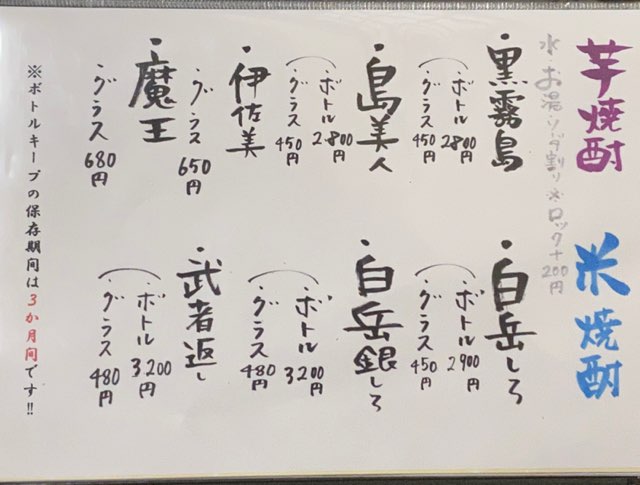 芋焼酎
水・お湯・ソーダ割り ※ロック+200円
・黒霧島
・ボトル 2800円
・グラス 450円
・島美人
・ボトル 2800円
・グラス 450円
・伊佐美
・グラス 650円
・魔王
・グラス 680円
米焼酎
・白岳しろ
・ボトル 2900円
・グラス 450円
・白岳銀しろ
・ボトル 3200円
・グラス 480円
・武者返し
・ボトル 3,200円
・グラス 480円
※ボトルキープの保存期間は3か月間です!!